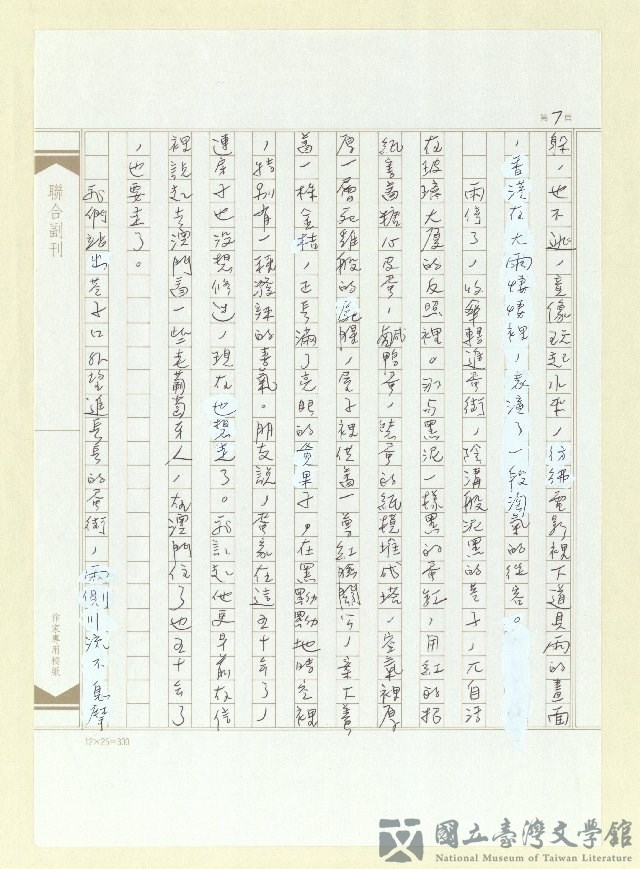 第7頁
躲，也不逃，竟像玩起水來，彷彿電影裡下道具雨的畫面
，普漢在大雨悽悽裡，表演了一段淘氣的從容。
雨停了，收傘轉進蛋街，陰溝般泥黑的巷子，兀自活
在玻璃大廈的反照裡。那与黑泥一樣黑的蛋缸，用紅的
紙書蓄糖心皮蛋，鹹鴨蛋，裝蛋的紙模堆成塔，空氣裡厚
厚一層死雞般的腥，屋子裡供著一尊紅臉關公，案下養
著一株金桔，正長滿了亮眼的黃果子，在黑黝黝地時空裡
，特別有一種潑辣的喜氣。朋友說，蛋家在這五十年了，
連房子也沒想修過，現在也想走了。我記起他更早前在信
裡說起去澳門看一些老葡萄牙人，在澳門住了也五十年了
，也要走了。
我們站出巷子口外望進長長的蛋街，兩側川流不息摩
聯合副刊
作家專用稿紙
12×25=300
國立臺灣文學館
National Museum of Taiwan Literature